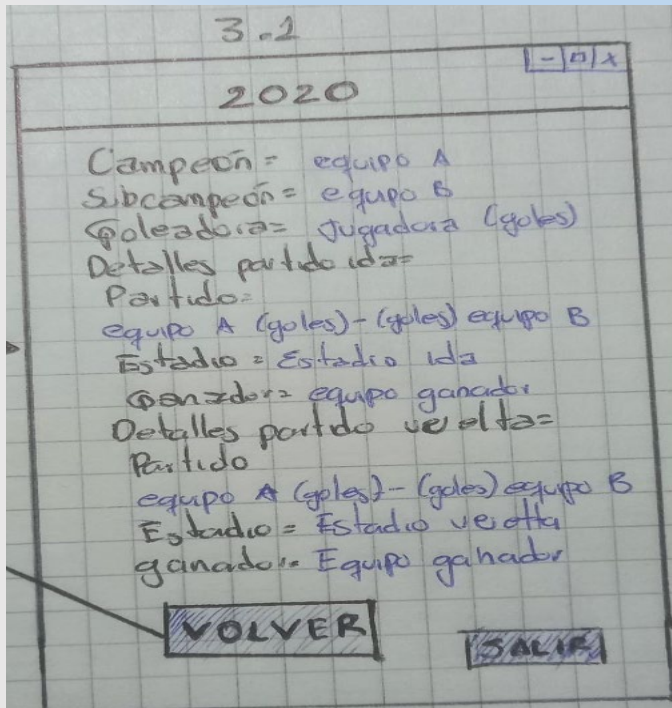 3.1
- □ x
2020
Campeón = equipo A
Subcampeón = equipo B
Goleadora = Jugadora (goles)
Detalles partido ida =
Partido =
equipo A (goles) - (goles) equipo B
Estadio = Estadio ida
Ganador = equipo ganador
Detalles partido vuelta =
Partido
equipo A (goles) - (goles) equipo B
Estadio = Estadio vuelta
ganador = Equipo ganador
VOLVER
SALIR